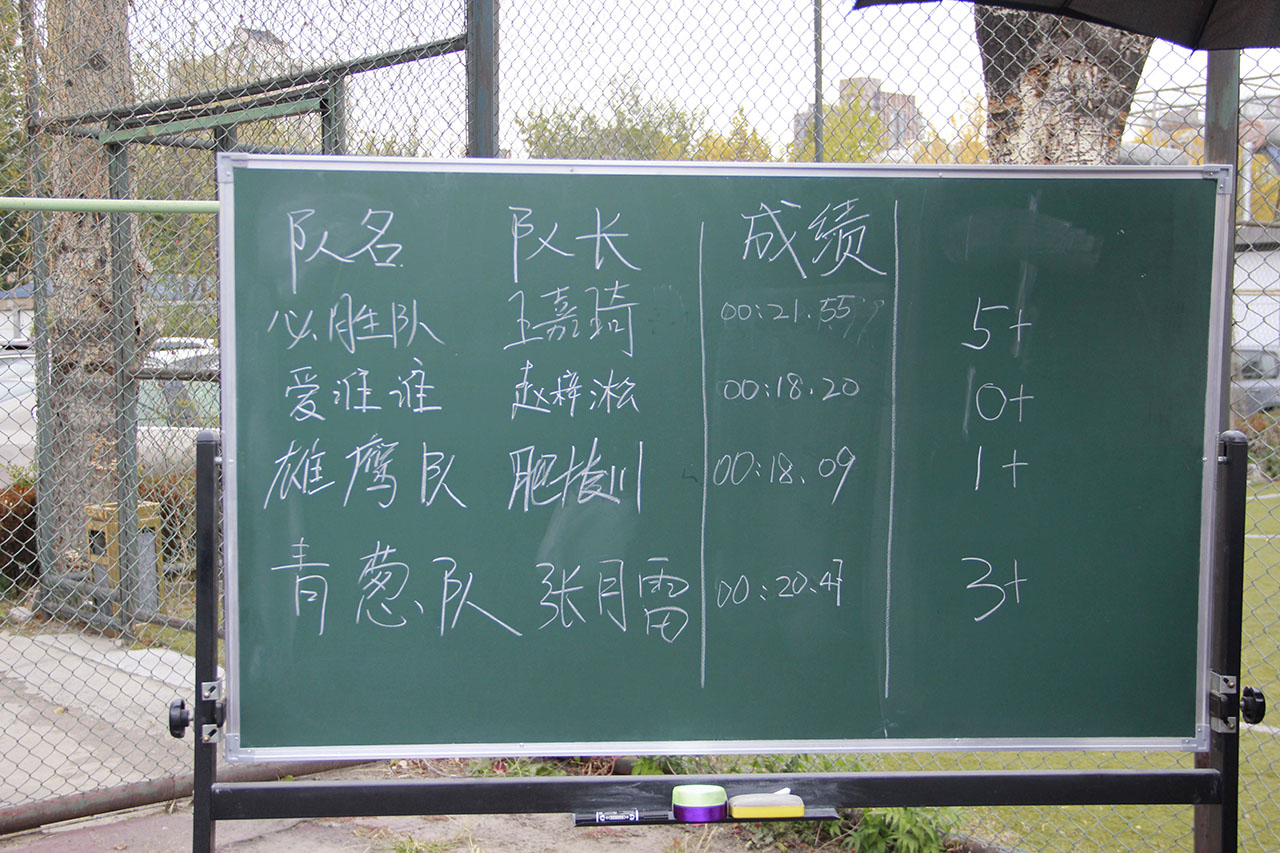 队名 队长 成绩
必胜队 王嘉琦 00:21.55 5+
爱谁谁 赵梓淞 00:18.20 0+
雄鹰队 肥拔川 00:18.09 1+
青葱队 张月雷 00:20.47 3+